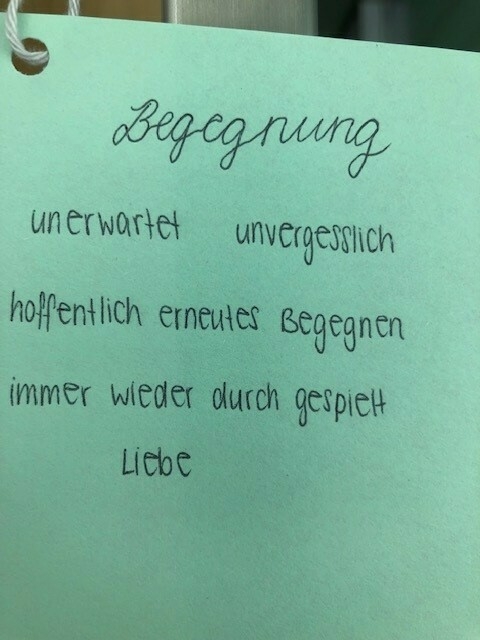 Begegnung
unerwartet unvergesslich
hoffentlich erneutes Begegnen
immer wieder durch gespielt
Liebe